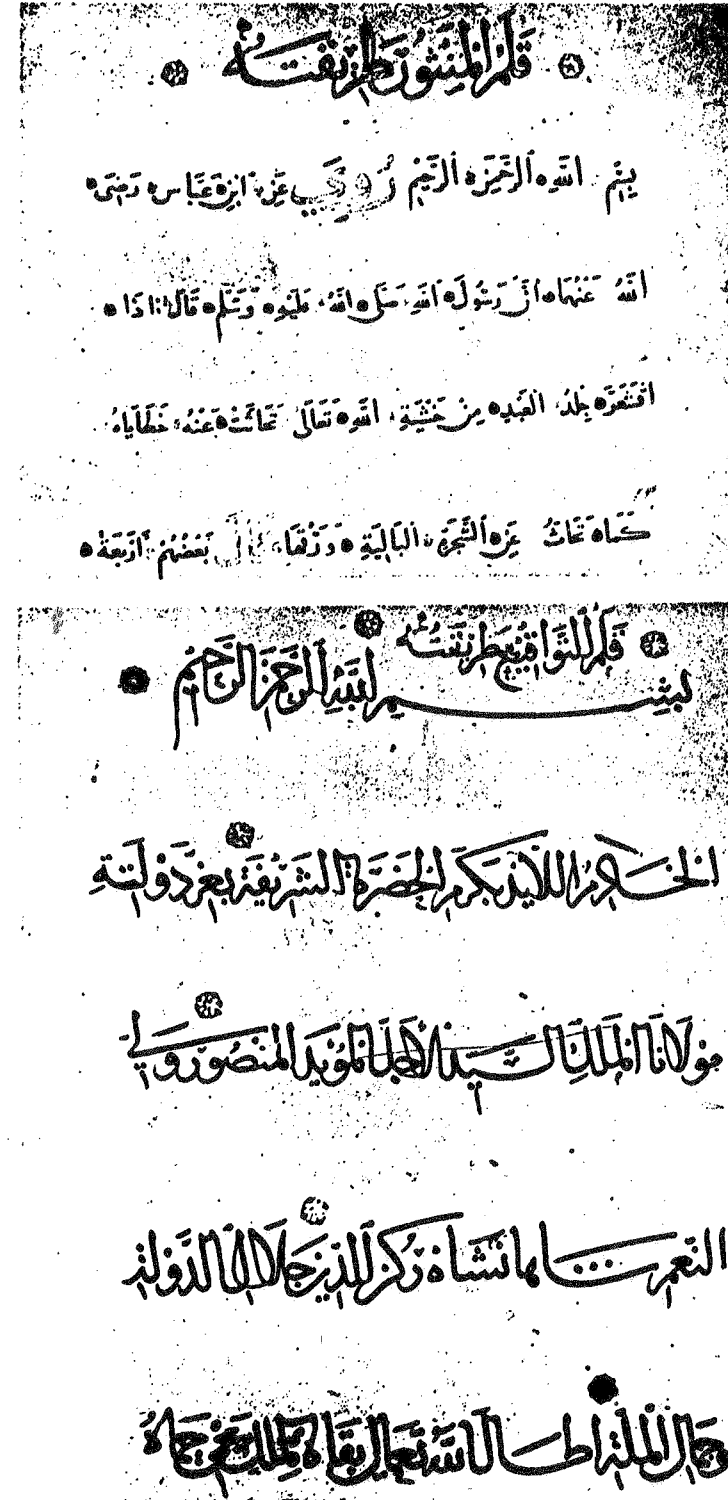 قَلَمُ الْمَنْثُورِ بِطَرِيقَتِهِ
بِسْمِ اللَّهِ الرَّحْمَنِ الرَّحِيمِ رُوِيَ عَنِ ابْنِ عَبَّاسٍ رَضِيَ
اللَّهُ عَنْهُمَا أَنَّ رَسُولَ اللَّهِ صَلَّى اللَّهُ عَلَيْهِ وَسَلَّمَ قَالَ إِذَا
اقْشَعَرَّ جِلْدُ الْعَبْدِ مِنْ خَشْيَةِ اللَّهِ تَعَالَى تَحَاتَّتْ عَنْهُ خَطَايَاهُ
كَمَا تَحَاتُّ عَنِ الشَّجَرَةِ الْبَالِيَةِ وَرَقُهَا بَعْضُهُمْ أَرْبَعَةٌ
قَلَمُ التَّوَاقِيعِ بِطَرِيقَتِهِ
بِسْمِ اللَّهِ الرَّحْمَنِ الرَّحِيمِ
الخَادِمُ اللَّائِذُ بِكَرَمِ الحَضْرَةِ الشَّرِيفَةِ بِعِزِّ دَوْلَتِهِ
مَوْلَانَا المَلِكِ السَّيِّدِ الأَجَلِّ المُؤَيَّدِ المَنْصُورِ وَلِي
النِّعَمِ شَاهَانْشَاه رُكْنِ الدِّينِ جَلَالِ الدَّوْلَةِ
جَمَالِ الْمِلَّةِ أَطَالَ اللَّهُ تَعَالَى بَقَاهُ